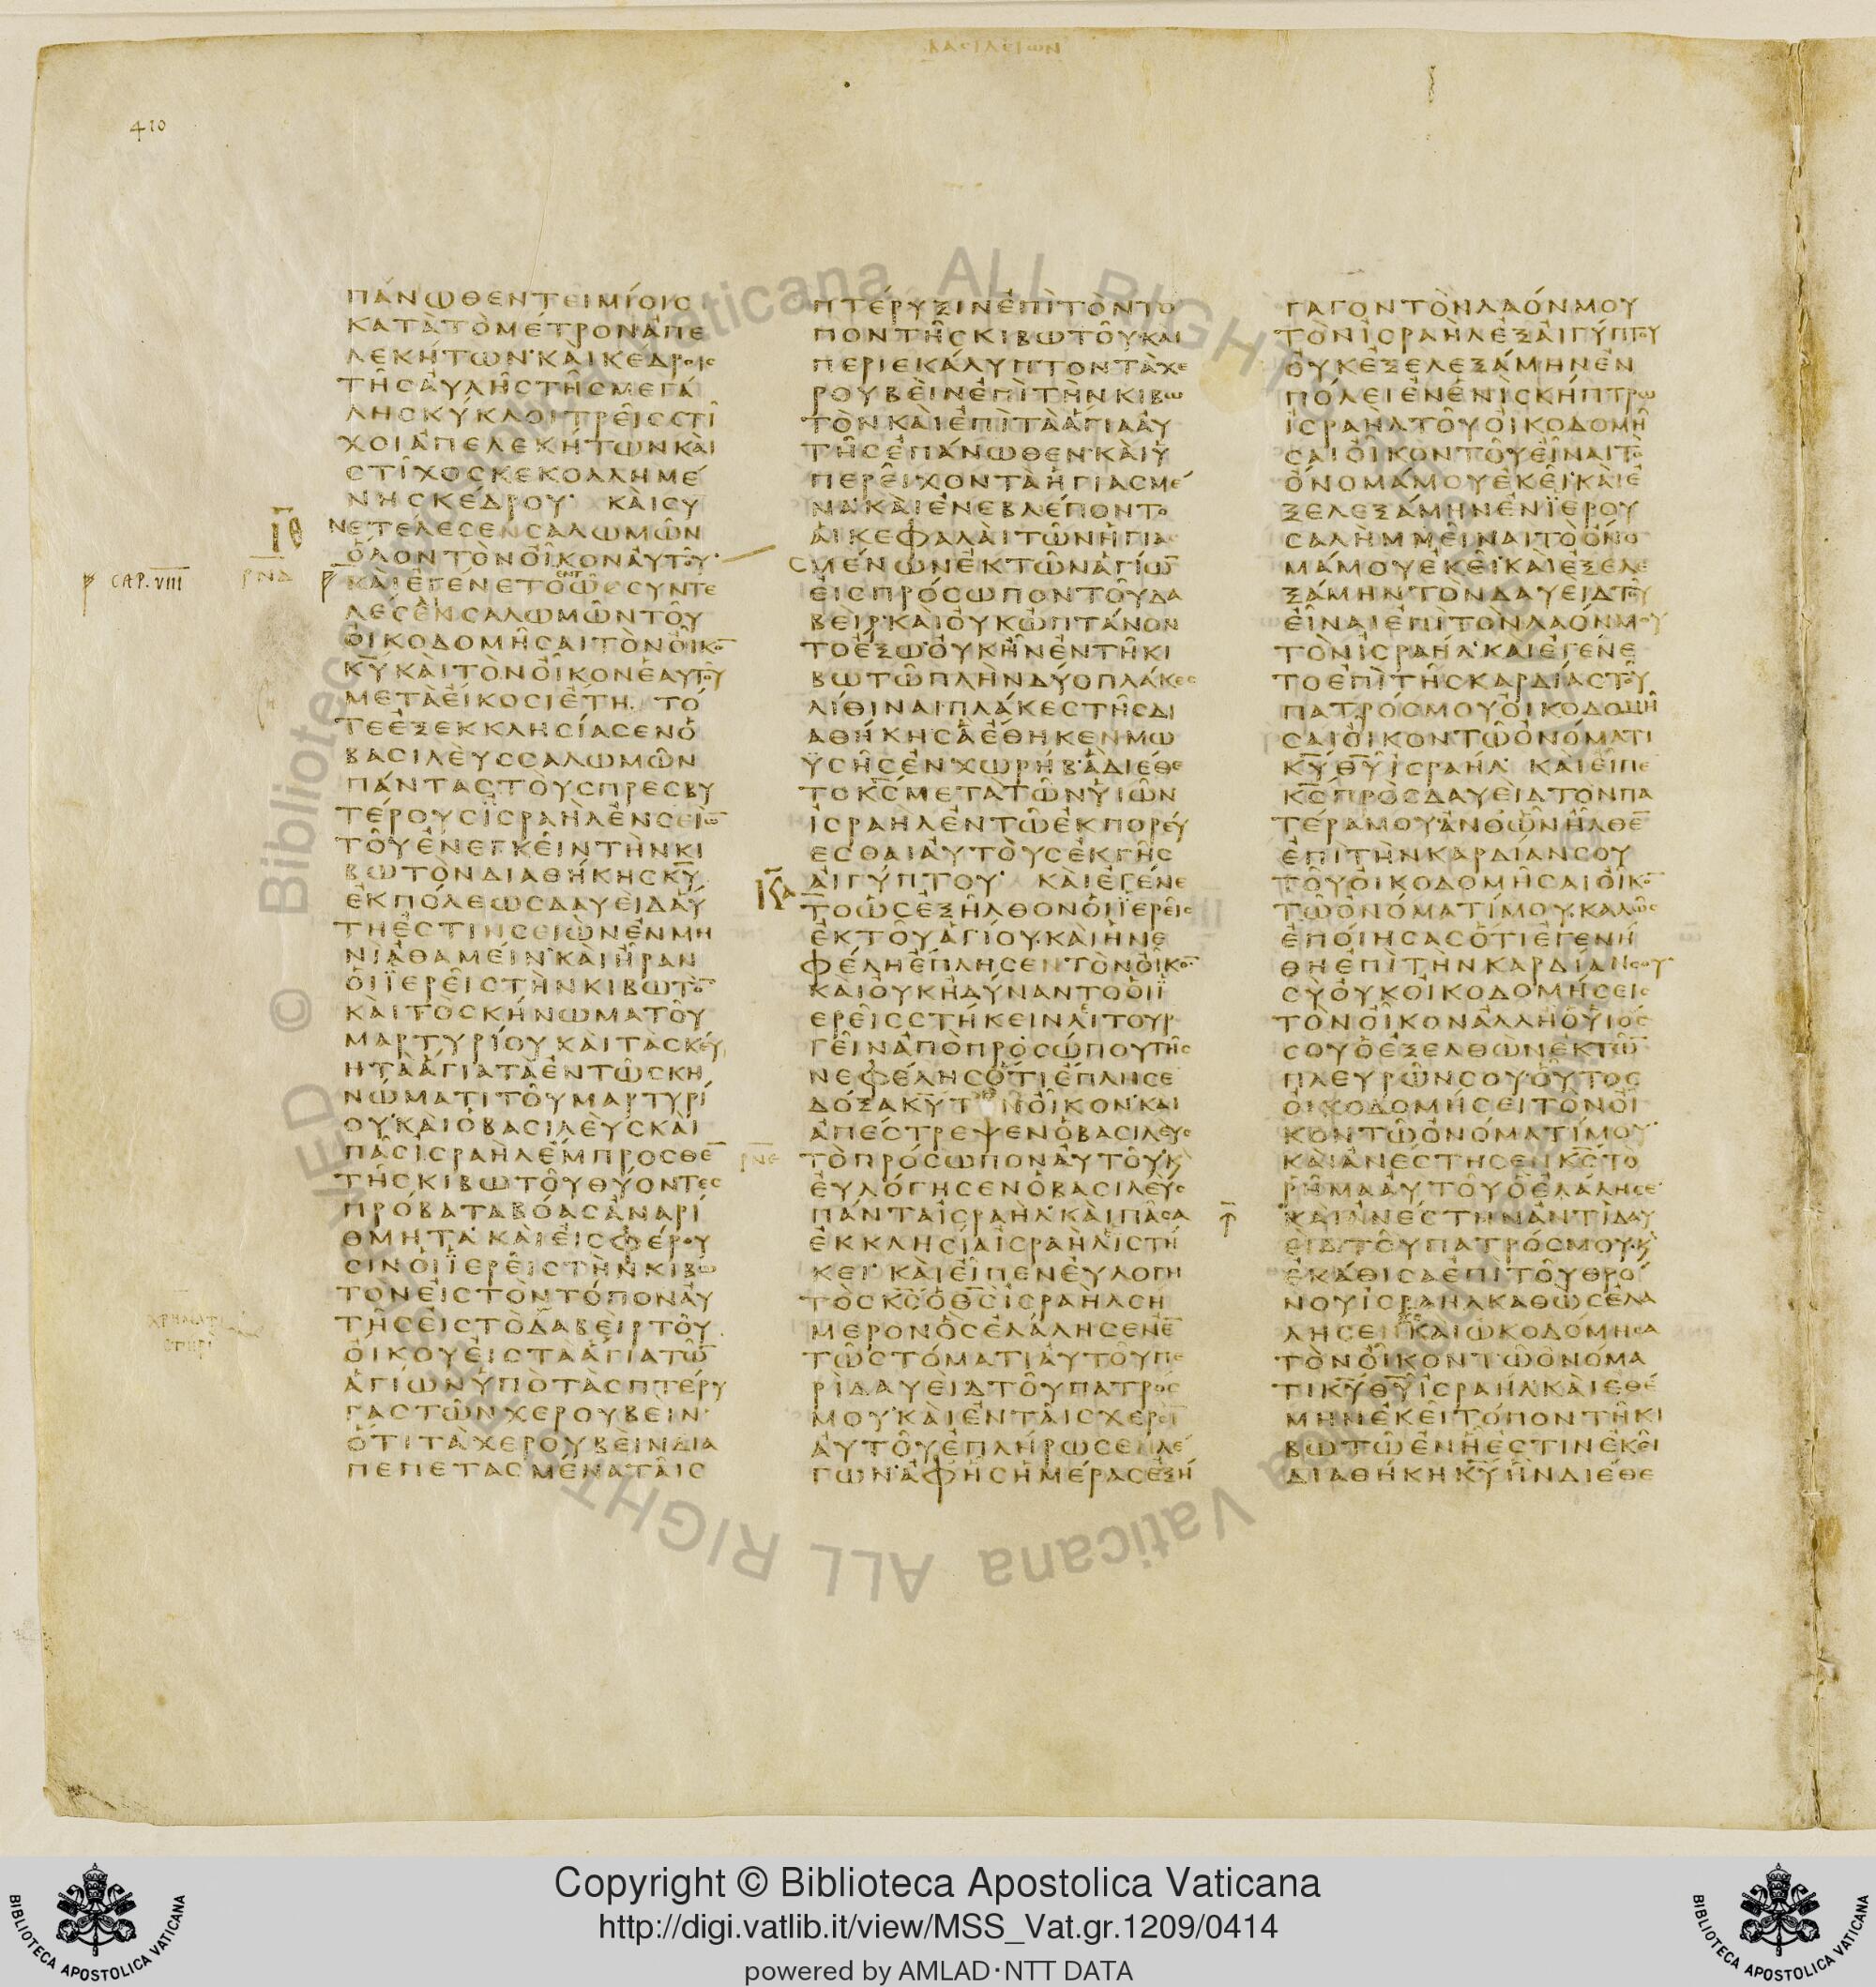 ΒΑCΙΛΕΙωΝ
410
ΠΑΝωΘΕΝΤΕΙΜΙΟΙC
ΚΑΤΑΤΟΜΕΤΡΟΝΑΠΕ
ΛΕΚΗΤωΝΚΑΙΚΕΔΡΟΙC
ΤΗCΑΥΛΗCΤΗCΜΕΓΑ
ΛΗCΚΥΚΛΟΙΤΡΕΙCCΤΙ
ΧΟΙΑΠΕΛΕΚΗΤωΝΚΑΙ
CΤΙΧΟCΚΕΚΟΛΛΗΜΕ
ΝΗCΚΕΔΡΟΥ ΚΑΙCΥ
ΝΕΤΕΛΕCΕΝCΑΛωΜωΝ
ΟΛΟΝΤΟΝΟΙΚΟΝΑΥΤΟΥ
CAP. VIII
ΡΝΔ
ΚΑΙΕΓΕΝΕΤΟωCCΥΝΤΕ
ΛΕCΕΝCΑΛωΜωΝΤΟΥ
ΟΙΚΟΔΟΜΗCΑΙΤΟΝΟΙΚΟ̅
ΚΥ̅ΚΑΙΤΟΝΟΙΚΟΝΕΑΥΤΟΥ
ΜΕΤΑΕΙΚΟCΙΕΤΗ ΤΟ
ΤΕΕΞΕΚΚΛΗCΙΑCΕΝΟ
ΒΑCΙΛΕΥCCΑΛωΜωΝ
ΠΑΝΤΑCΤΟΥCΠΡΕCΒΥ
ΤΕΡΟΥCΙCΡΑΗΛΕΝCΕΙω̅
ΤΟΥΕΝΕΓΚΕΙΝΤΗΝΚΙ
ΒωΤΟΝΔΙΑΘΗΚΗCΚΥ̅
ΕΚΠΟΛΕωCΔΑΥΕΙΔΑΥ
ΤΗΕCΤΙΝCΕΙωΝΕΝΜΗ
ΝΙΑΘΑΜΕΙΝΚΑΙΗΡΑΝ
ΟΙΪΕΡΕΙCΤΗΝΚΙΒωΤΟ̅
ΚΑΙΤΟCΚΗΝωΜΑΤΟΥ
ΜΑΡΤΥΡΙΟΥΚΑΙΤΑCΚΕΥ
ΗΤΑΑΓΙΑΤΑΕΝΤωCΚΗ
ΝωΜΑΤΙΤΟΥΜΑΡΤΥΡΙ
ΟΥΚΑΙΟΒΑCΙΛΕΥCΚΑΙ
ΠΑCΙCΡΑΗΛΕΜΠΡΟCΘΕ̅
ΤΗCΚΙΒωΤΟΥΘΥΟΝΤΕC
ΠΡΟΒΑΤΑΒΟΑCΑΝΑΡΙ
ΘΜΗΤΑΚΑΙΕΙCΦΕΡΟΥ
CΙΝΟΙΪΕΡΕΙCΤΗΝΚΙΒω
ΤΟΝΕΙCΤΟΝΤΟΠΟΝΑΥ
ΤΗCΕΙCΤΟΔΑΒΕΙΡΤΟΥ
ΟΙΚΟΥΕΙCΤΑΑΓΙΑΤω̅
ΑΓΙωΝΥΠΟΤΑCΠΤΕΡΥ
ΓΑCΤωΝΧΕΡΟΥΒΕΙΝ
ΟΤΙΤΑΧΕΡΟΥΒΕΙΝΔΙΑ
ΠΕΠΕΤΑCΜΕΝΑΤΑΙC
ΠΤΕΡΥΞΙΝΕΠΙΤΟΝΤΟ
ΠΟΝΤΗCΚΙΒωΤΟΥΚΑΙ
ΠΕΡΙΕΚΑΛΥΠΤΟΝΤΑΧΕ
ΡΟΥΒΕΙΝΕΠΙΤΗΝΚΙΒω
ΤΟΝΚΑΙΕΠΙΤΑΑΓΙΑΑΥ
ΤΗCΕΠΑΝωΘΕΝΚΑΙΥ
ΠΕΡΕΙΧΟΝΤΑΗΓΙΑCΜΕ
ΝΑΚΑΙΕΝΕΒΛΕΠΟΝΤΟ
ΑΙΚΕΦΑΛΑΙΤωΝΗΓΙΑ
CΜΕΝωΝΕΚΤωΝΑΓΙω̅
ΕΙCΠΡΟCωΠΟΝΤΟΥΔΑ
ΒΕΙΡΚΑΙΟΥΚωΠΤΑΝΟΝ
ΤΟΕΞωΟΥΚΗΝΕΝΤΗΚΙ
ΒωΤωΠΛΗΝΔΥΟΠΛΑΚΕC
ΛΙΘΙΝΑΙΠΛΑΚΕCΤΗCΔΙ
ΑΘΗΚΗCΑΕΘΗΚΕΝΜω
ΫCΗCΕΝΧωΡΗΒΑΔΙΕΘΕ
ΤΟΚC̅ΜΕΤΑΤωΝΥΙωΝ
ΙCΡΑΗΛΕΝΤωΕΚΠΟΡΕΥ
ΕCΘΑΙΑΥΤΟΥCΕΚΓΗC
ΑΙΓΥΠΤΟΥ ΚΑΙΕΓΕΝΕ
ΤΟωCΕΞΗΛΘΟΝΟΙΪΕΡΕΙC
ΕΚΤΟΥΑΓΙΟΥΚΑΙΗΝΕ
ΦΕΛΗΕΠΛΗCΕΝΤΟΝΟΙΚΟ̅
ΚΑΙΟΥΚΗΔΥΝΑΝΤΟΟΙΪ
ΕΡΕΙCCΤΗΚΕΙΝΛΙΤΟΥΡ
ΓΕΙΝΑΠΟΠΡΟCωΠΟΥΤΗC
ΝΕΦΕΛΗCΟΤΙΕΠΛΗCΕ
ΔΟΞΑΚΥ̅ΤΟΝΟΙΚΟΝΚΑΙ
ΑΠΕCΤΡΕΨΕΝΟΒΑCΙΛΕΥC
ΤΟΠΡΟCωΠΟΝΑΥΤΟΥΚ
ΕΥΛΟΓΗCΕΝΟΒΑCΙΛΕΥC
ΠΑΝΤΑΙCΡΑΗΛΚΑΙΠΑCΑ
ΕΚΚΛΗCΙΑΙCΡΑΗΛΙCΤΗ
ΚΕΙΚΑΙΕΙΠΕΝΕΥΛΟΓΗ
ΤΟCΚC̅ΟΘC̅ΙCΡΑΗΛCΗ
ΜΕΡΟΝΟCΕΛΑΛΗCΕΝΕ̅
ΤωCΤΟΜΑΤΙΑΥΤΟΥΠΕ
ΡΙΔΑΥΕΙΔΤΟΥΠΑΤΡΟC
ΜΟΥΚΑΙΕΝΤΑΙCΧΕΡCΙ
ΑΥΤΟΥΕΠΛΗΡωCΕΝΛΕ
ΓωΝΑΦΗCΗΜΕΡΑCΕΞΗ
ΓΑΓΟΝΤΟΝΛΑΟΝΜΟΥ
ΤΟΝΙCΡΑΗΛΕΞΑΙΓΥΠΤΟΥ
ΟΥΚΕΞΕΛΕΞΑΜΗΝΕΝ
ΠΟΛΕΙΕΝΕΝΙCΚΗΠΤΡω
ΙCΡΑΗΛΤΟΥΟΙΚΟΔΟΜΗ
CΑΙΟΙΚΟΝΤΟΥΕΙΝΑΙΤΟ
ΟΝΟΜΑΜΟΥΕΚΕΙΚΑΙΕ
ΞΕΛΕΞΑΜΗΝΕΝΪΕΡΟΥ
CΑΛΗΜΜΕΙΝΑΙΤΟΟΝΟ
ΜΑΜΟΥΕΚΕΙΚΑΙΕΞΕΛΕ
ΞΑΜΗΝΤΟΝΔΑΥΕΙΔΤΟΥ
ΕΙΝΑΙΕΠΙΤΟΝΛΑΟΝΜΟΥ
ΤΟΝΙCΡΑΗΛΚΑΙΕΓΕΝΕ
ΤΟΕΠΙΤΗCΚΑΡΔΙΑCΤΟΥ
ΠΑΤΡΟCΜΟΥΟΙΚΟΔΟΜΗ
CΑΙΟΙΚΟΝΤωΟΝΟΜΑΤΙ
ΚΥ̅ΘΥ̅ΙCΡΑΗΛ ΚΑΙΕΙΠΕ
ΚC̅ΠΡΟCΔΑΥΕΙΔΤΟΝΠΑ
ΤΕΡΑΜΟΥΑΝΘωΝΗΛΘΕ̅
ΕΠΙΤΗΝΚΑΡΔΙΑΝCΟΥ
ΤΟΥΟΙΚΟΔΟΜΗCΑΙΟΙΚΟ̅
ΤωΟΝΟΜΑΤΙΜΟΥΚΑΛωC
ΕΠΟΙΗCΑCΟΤΙΕΓΕΝΗ
ΘΗΕΠΙΤΗΝΚΑΡΔΙΑΝCΟΥ
CΥΟΥΚΟΙΚΟΔΟΜΗCΕΙC
ΤΟΝΟΙΚΟΝΑΛΛΗΟΥΙΟC
CΟΥΟΕΞΕΛΘωΝΕΚΤω̅
ΠΛΕΥΡωΝCΟΥΟΥΤΟC
ΟΙΚΟΔΟΜΗCΕΙΤΟΝΟΙ
ΚΟΝΤωΟΝΟΜΑΤΙΜΟΥ
ΚΑΙΑΝΕCΤΗCΕΝΚC̅ΤΟ
ΡΗΜΑΑΥΤΟΥΟΕΛΑΛΗCΕ
ΚΑΙΑΝΕCΤΗΝΑΝΤΙΔΑΥ
ΕΙΔΤΟΥΠΑΤΡΟCΜΟΥΚ
ΕΚΑΘΙCΑΕΠΙΤΟΥΘΡΟ
ΝΟΥΙCΡΑΗΛΚΑΘωCΕΛΑ
ΛΗCΕΝΚC̅ΚΑΙωΚΟΔΟΜΗCΑ
ΤΟΝΟΙΚΟΝΤωΟΝΟΜΑ
ΤΙΚΥ̅ΘΥ̅ΙCΡΑΗΛΚΑΙΕΘΕ
ΜΗΝΕΚΕΙΤΟΠΟΝΤΗΚΙ
ΒωΤωΕΝΗΕCΤΙΝΕΚΕΙ
ΔΙΑΘΗΚΗΚΥ̅ΗΝΔΙΕΘΕ
Copyright © Biblioteca Apostolica Vaticana
http://digi.vatlib.it/view/MSS_Vat.gr.1209/0414
powered by AMLAD·NTT DATA
BIBLIOTECA APOSTOLICA VATICANA
BIBLIOTECA APOSTOLICA VATICANA